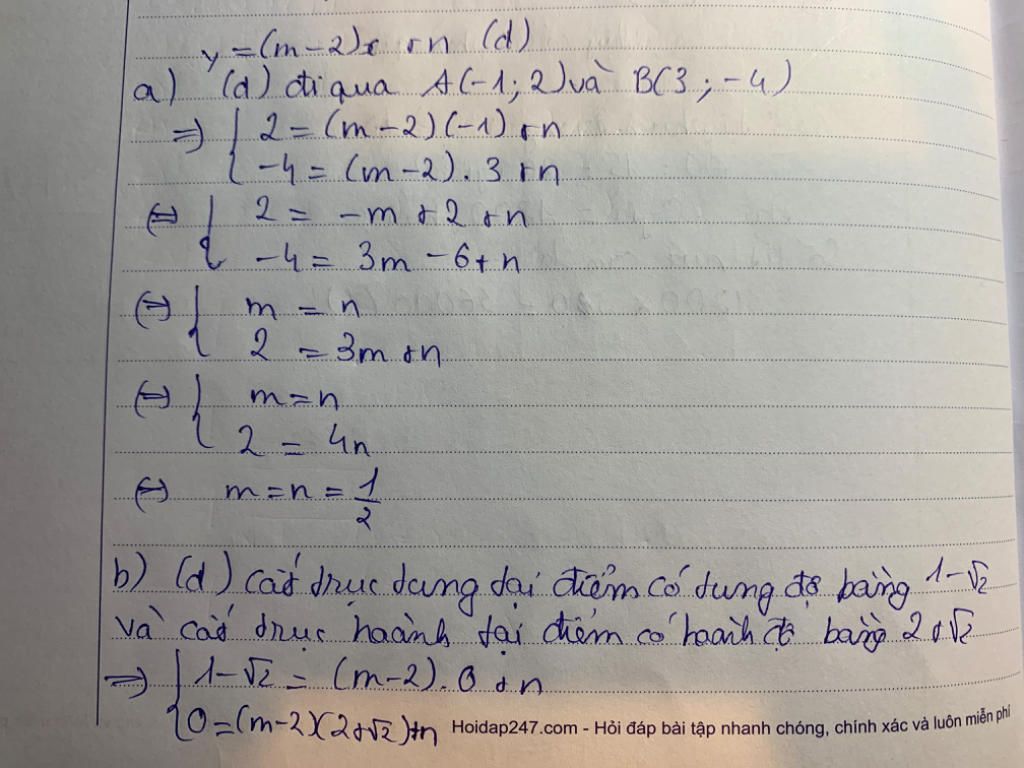 y = (m-2)x + n (d)
a) (d) đi qua A(-1; 2) và B(3; -4)
⇒ { 2 = (m-2)(-1) + n
-4 = (m-2). 3 + n
⇔ { 2 = -m + 2 + n
-4 = 3m - 6 + n
⇔ { m = n
2 = 3m + n
⇔ { m = n
2 = 4n
⇔ m = n = 1/2
b) (d) cắt trục tung tại điểm có tung độ bằng 1-√2
và cắt trục hoành tại điểm có hoành độ bằng 2+√2
⇒ { 1-√2 = (m-2). 0 + n
0 = (m-2)(2+√2) + n
Hoidap247.com - Hỏi đáp bài tập nhanh chóng, chính xác và luôn miễn phí